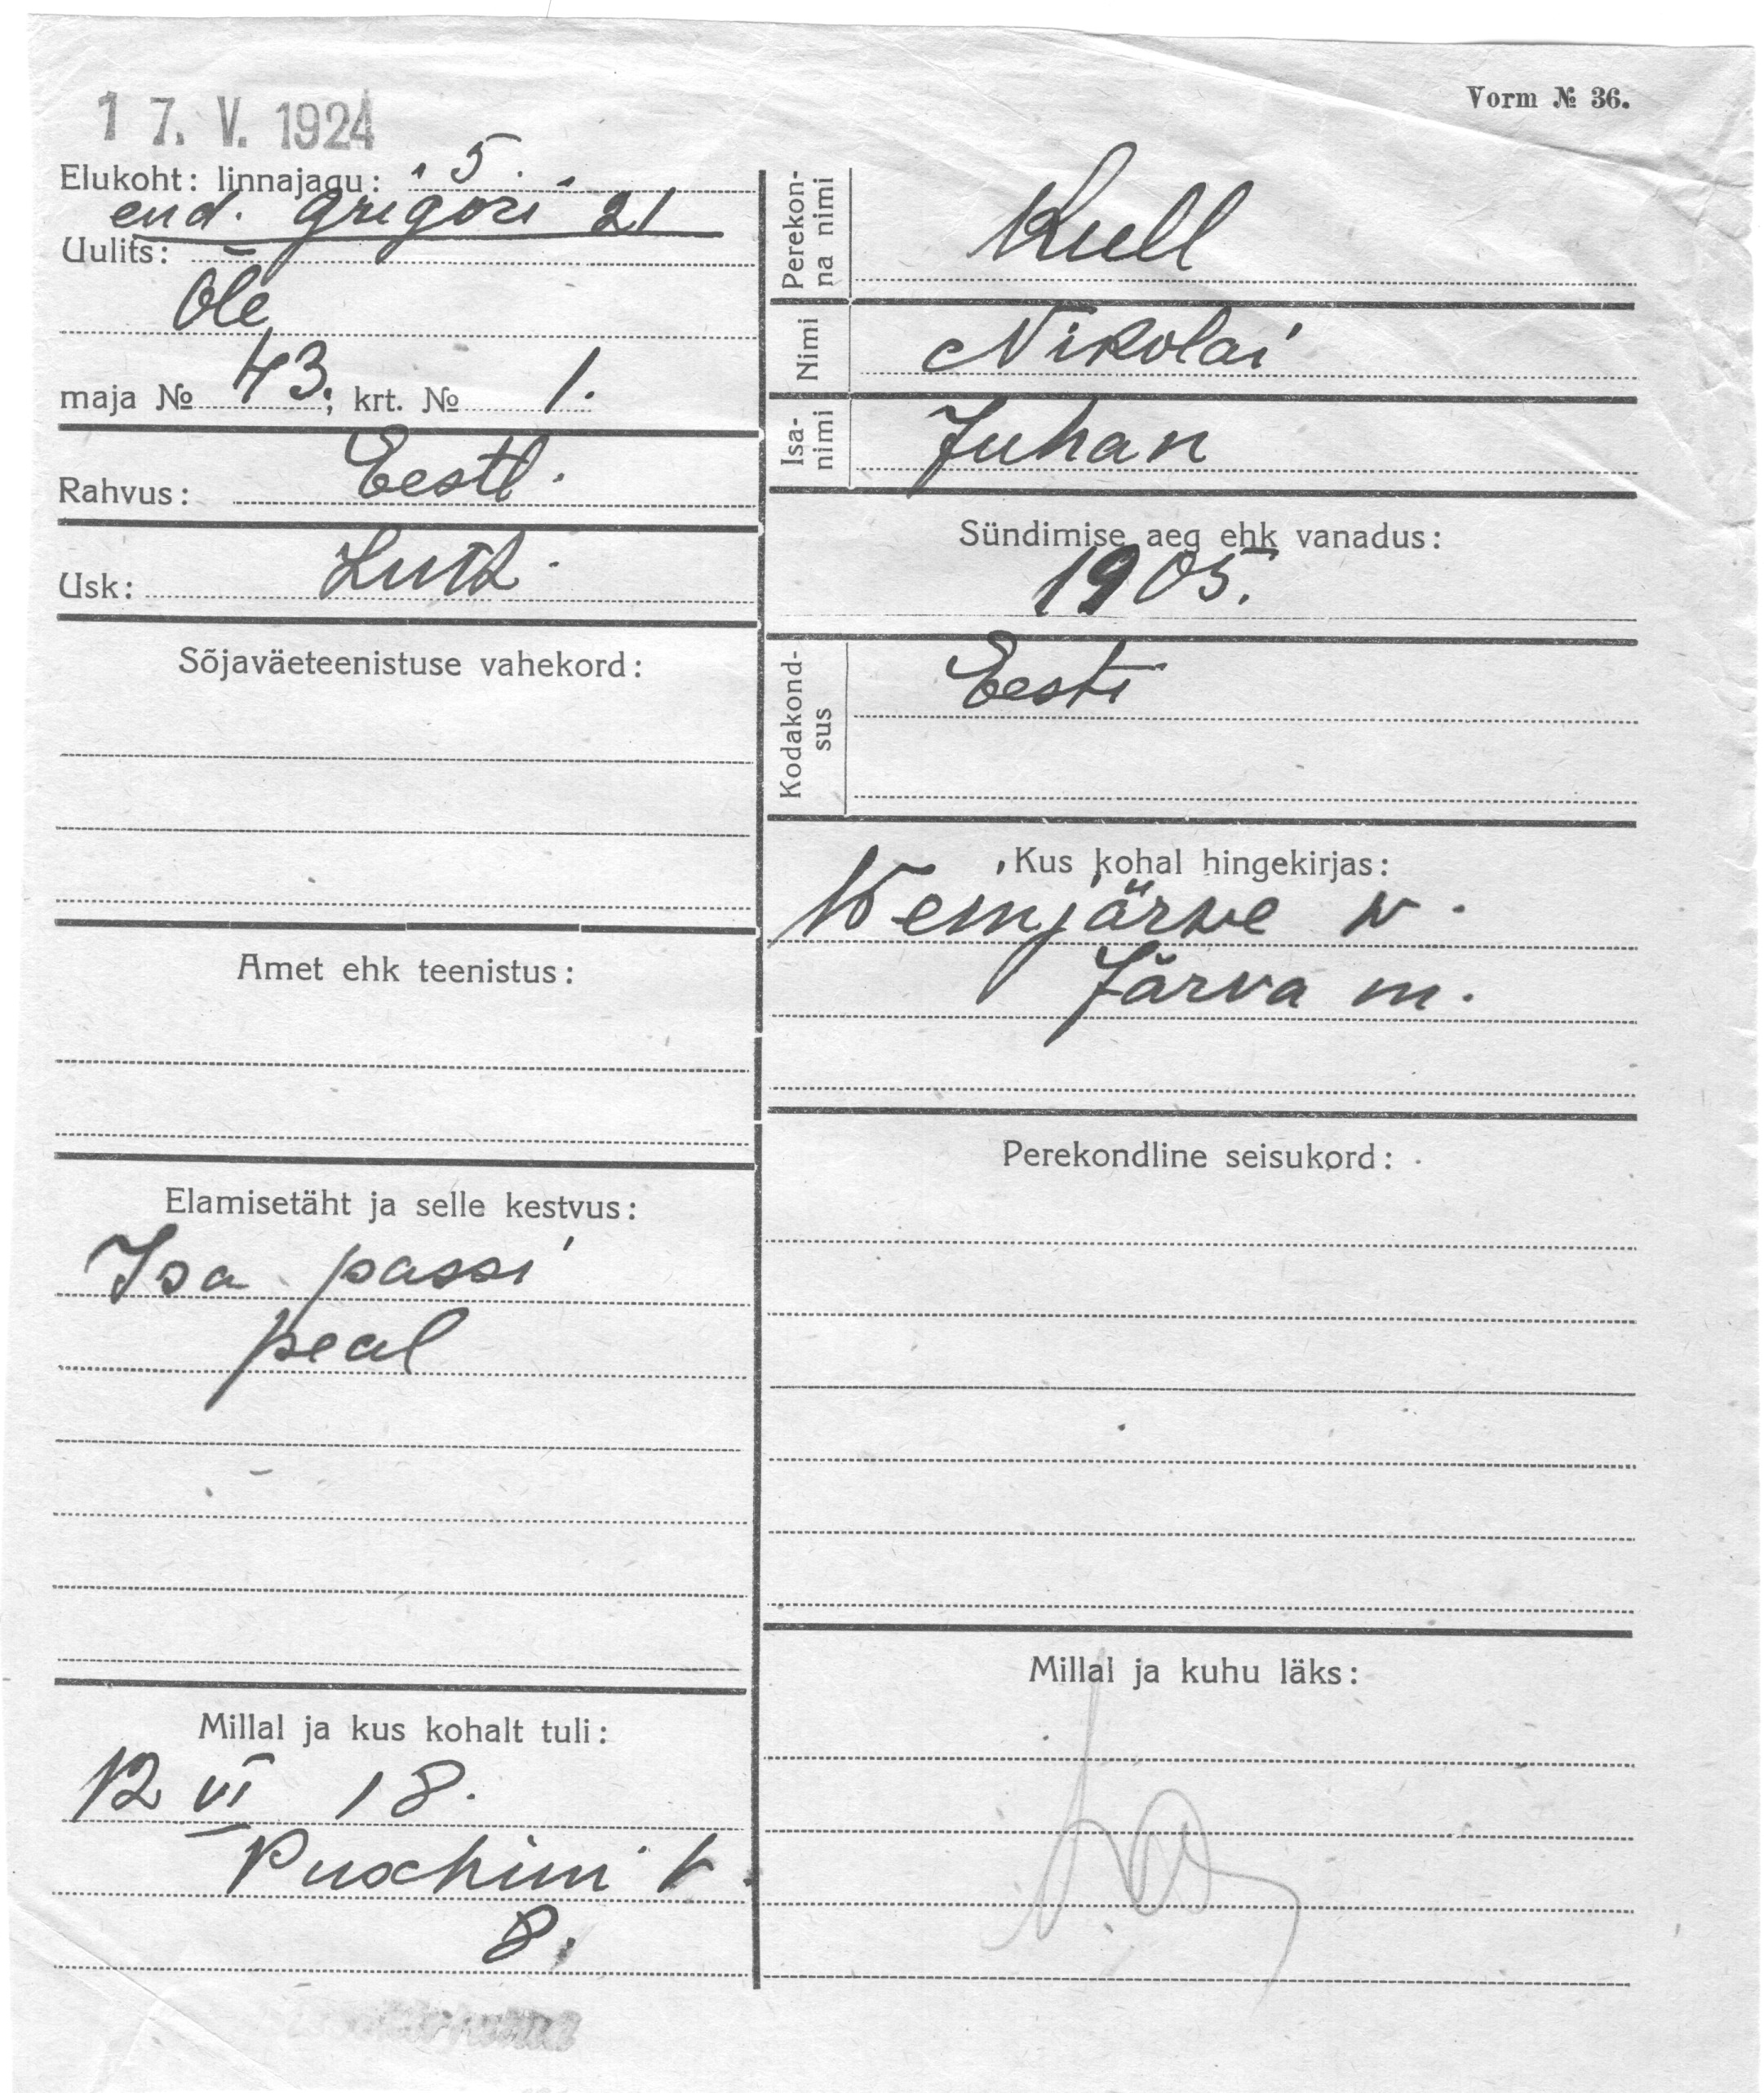 17. V. 1924
Vorm № 36.
Elukoht: linnajagu: 5.
end. Grigori 21
Uulits:
Õle
maja № 43; krt. № 1.
Rahvus: Eestl.
Usk: Luth.
Sõjaväeteenistuse vahekord:
Amet ehk teenistus:
Elamisetäht ja selle kestvus:
Isa passi
peal
Millal ja kus kohalt tuli:
12 VI 18.
Puschini t
8.
Perekon-
na nimi
Kull
Nimi
Nikolai
Isa-
nimi
Juhan
Sündimise aeg ehk vanadus:
1905.
Kodakond-
sus
Eesti
Kus kohal hingekirjas:
järwe w.
Järva m.
Perekondline seisukord:
Millal ja kuhu läks: